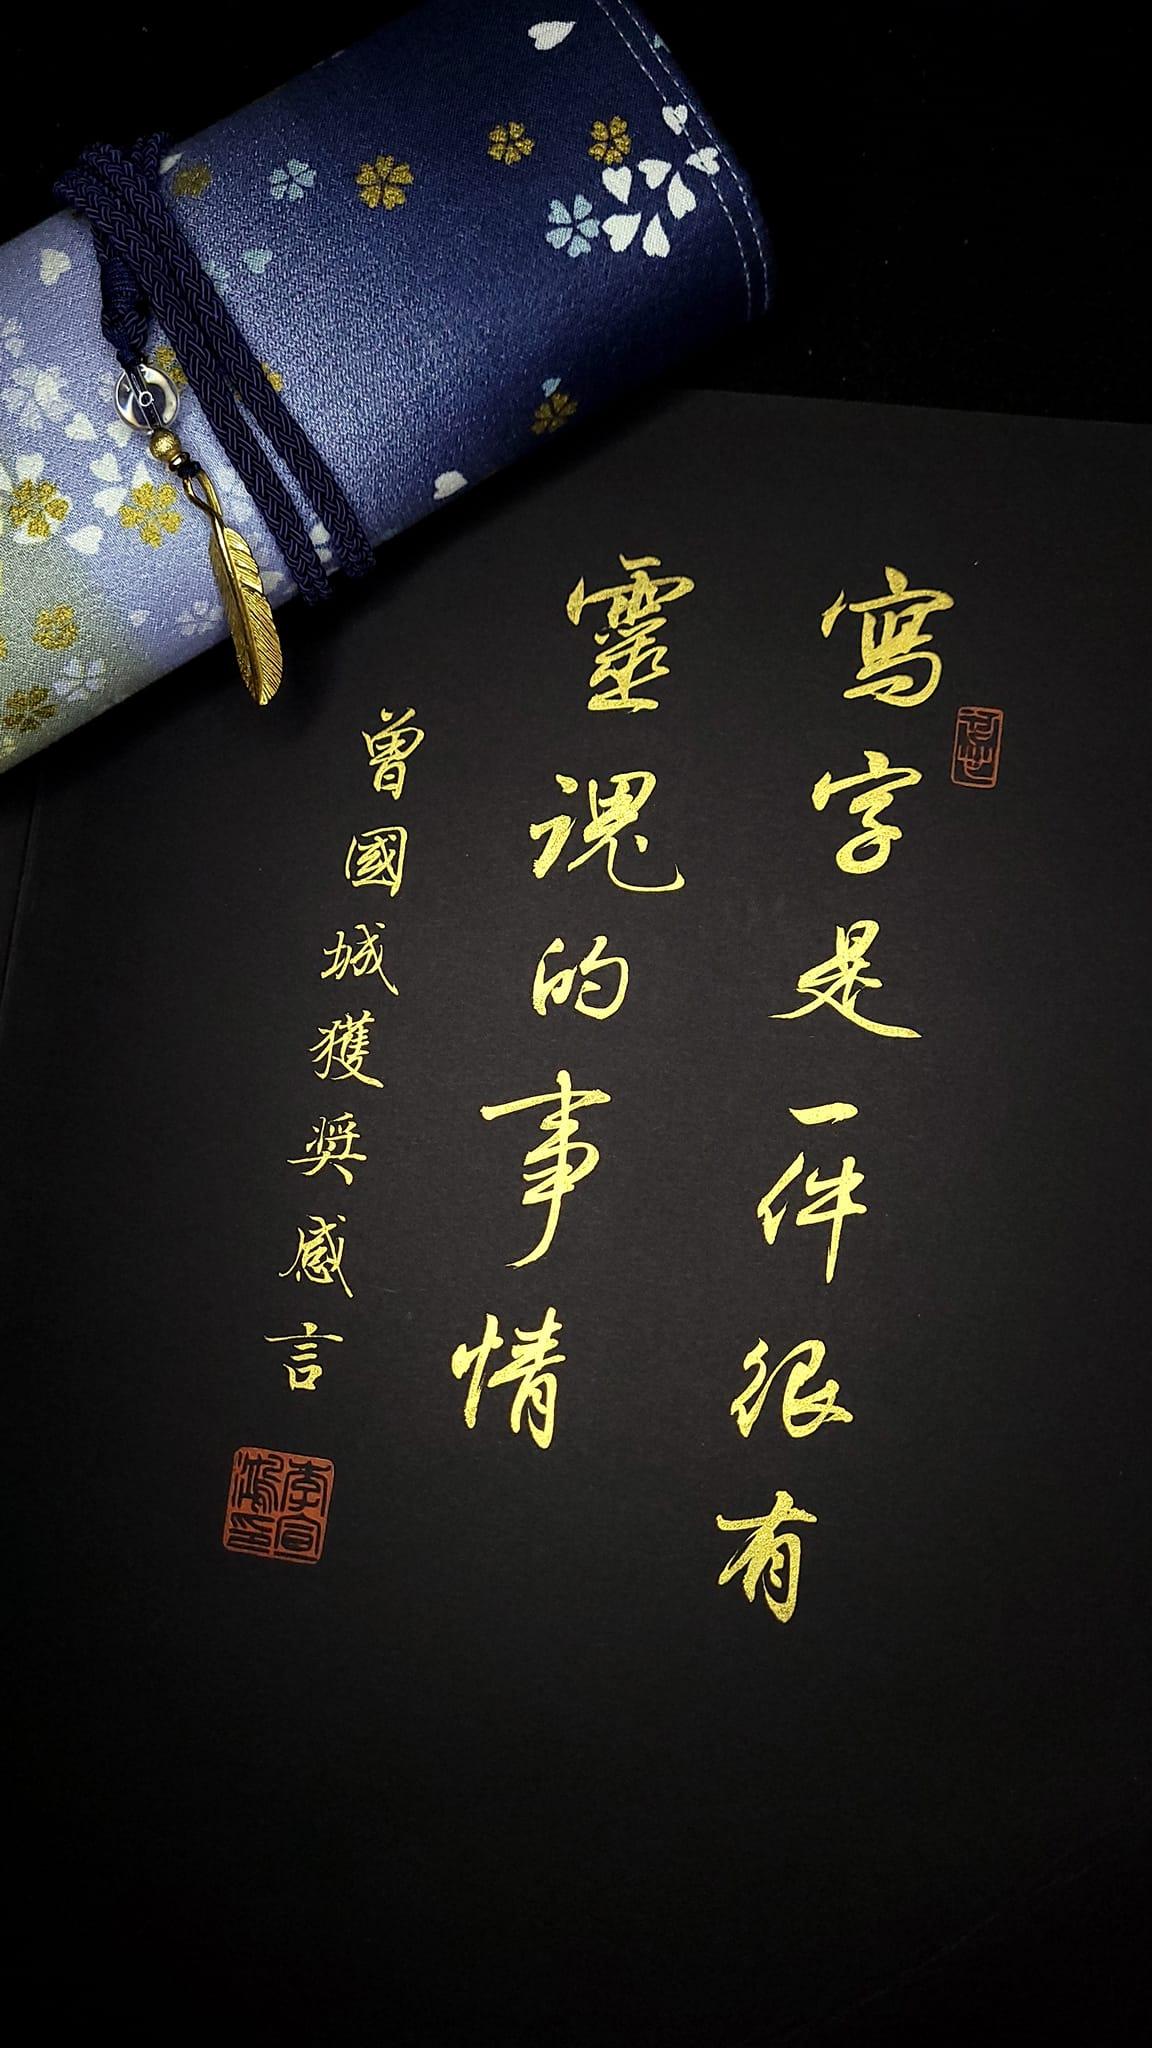 寫字是一件很有
靈魂的事情
曾國城獲獎感言
李宜鴻印